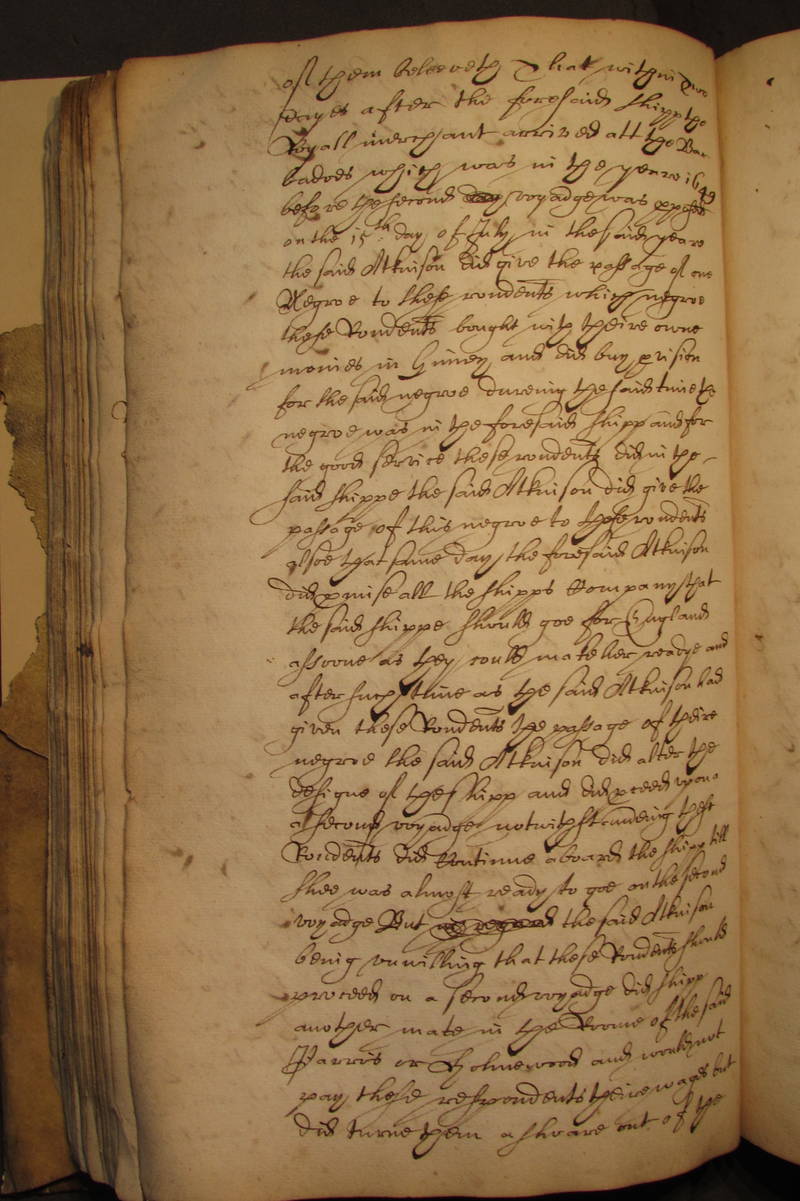 of them beleeveth That within two
dayes after the foresaid shipp the
Royall merchant arrived att the Bar
badoes which was in the yeare 1649
before the second voyadge was
on the 15th day of July in the said yeare
the said Atkinson did give the passage of one
Negroe to these rondents which negroe
these Rondents bought with theire owne
monies in Guiney and did buy provision
for the said negroe dureing the said time the
negroe was in the foresaid shipp and for
the good service these rondents did in the
said shippe the said Atkinson did give the
passage of this negroe to these rondents
alsoe that same day the foresaid Atkinson
did promise all the shipps Company that
the said shippe should goe for England
assoone as they could make her readye and
after such time as the said Atkinson had
given these Rondents the passage of theire
negroe the said Atkinson did alter the
designe of the shipp and did proceed upon
a second voyadge notwithstandeing these
Rondents did Continue aboard the shipp till
shee was almost ready to goe on the second
voyadge But the said Atkinson
being unwilling that these Rondents should
proceed on a second voyadge did shipp
another mate in the Roome of the said
Parris or Holmewood and would not
pay these respondents theire wages but
did turne them ashoare out of the